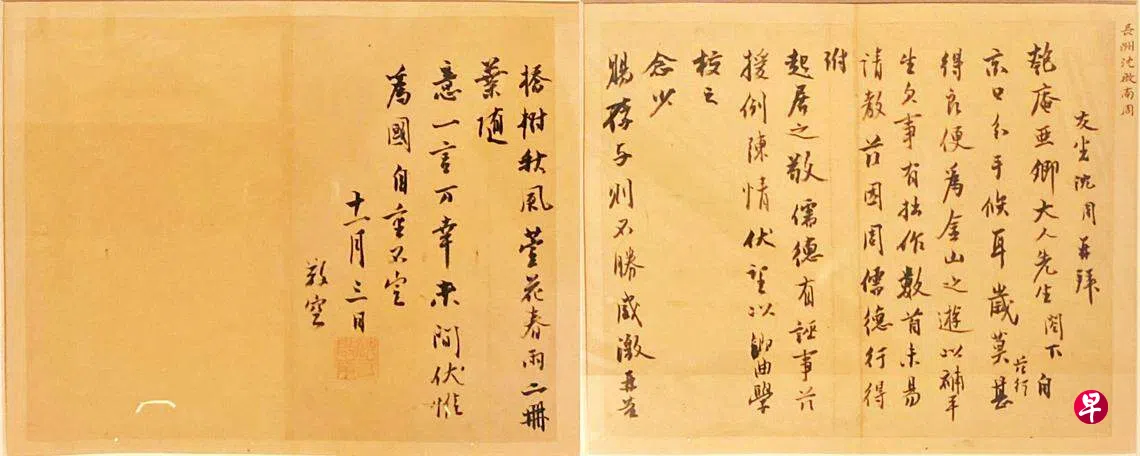 長洲沈啟南周
友生沈周再拜
匏庵亞卿大人先生閣下自
京口分手候耳歲莫甚
得良便為金山之遊以補平
生欠事有拙作數首未易
請教茲因周儒德行得
附
起居之敬儒德有誣事茲
援例陳情伏望以鄉曲學
校之
念少
賜存与則不勝感激再茲
橋樹秋風萱花春雨二冊
葉隨
意一言万幸未間伏惟
為國自重不宣
十一月三日
敬空
早